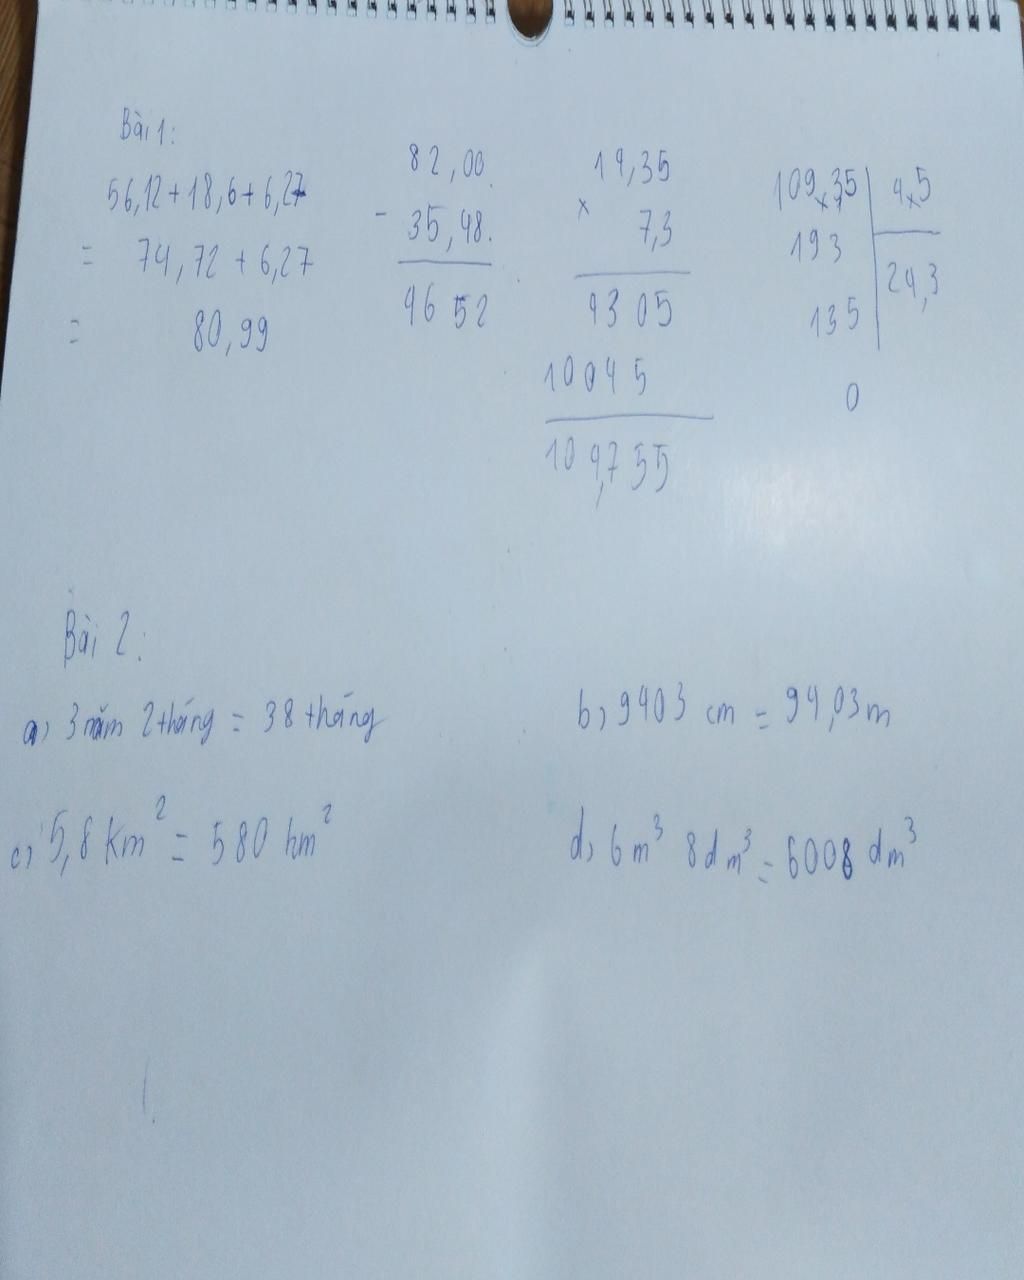 Bài 1:
56,12 + 18,6 + 6,27
= 74,72 + 6,27
= 80,99
82,00
- 35,48
46 52
14,35
x 7,3
4305
10045
104,755
109,35 4,5
193
24,3
135
0
Bài 2:
a, 3 năm 2 tháng = 38 tháng
b, 9403 cm = 94,03 m
c, 5,8 km² = 580 hm²
d, 6 m³ 8 dm³ = 6008 dm³